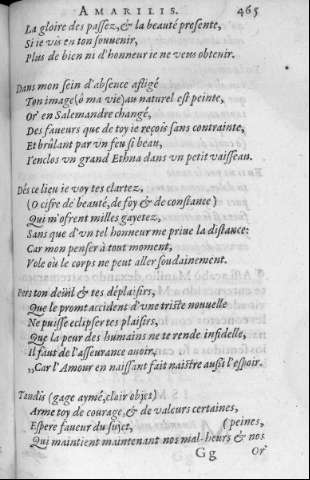 AMARILIS. 465
La gloire des passez, & la beauté presente,
Si ie vis en ton souuenir,
Plus de bien ni d'honneur ie ne veus obtenir.
Dans mon sein d'absence afligé
Ton image (ô ma vie) au naturel est peinte,
Or' en Salemandre changé,
Des faueurs que de toy ie reçois sans contrainte,
Et brûlant par vn feu si beau,
I'enclos vn grand Ethna dans vn petit vaisseau.
Dés ce lieu ie voy tes clartez,
(O cifre de beauté, de foy & de constance)
Qui m'ofrent milles gayetez,
Sans que d'vn tel honneur me priue la distance:
Car mon penser à tout moment,
Vole où le corps ne peut aller soudainement.
Pers ton deüil & tes déplaisirs,
Que le promt accident d'vne triste nouuelle
Ne puisse eclipser tes plaisirs,
Que la peur des humains ne te rende infidelle,
Il faut de l'asseurance auoir,
,,Car l'Amour en naissant fait naistre aussi l'espoir.
Tandis (gage aymé, clair objet)
Arme toy de courage, & de valeurs certaines,
Espere faueur du sujet, (peines,
Qui maintient maintenant nos mal-heurs & nos
Gg Or'